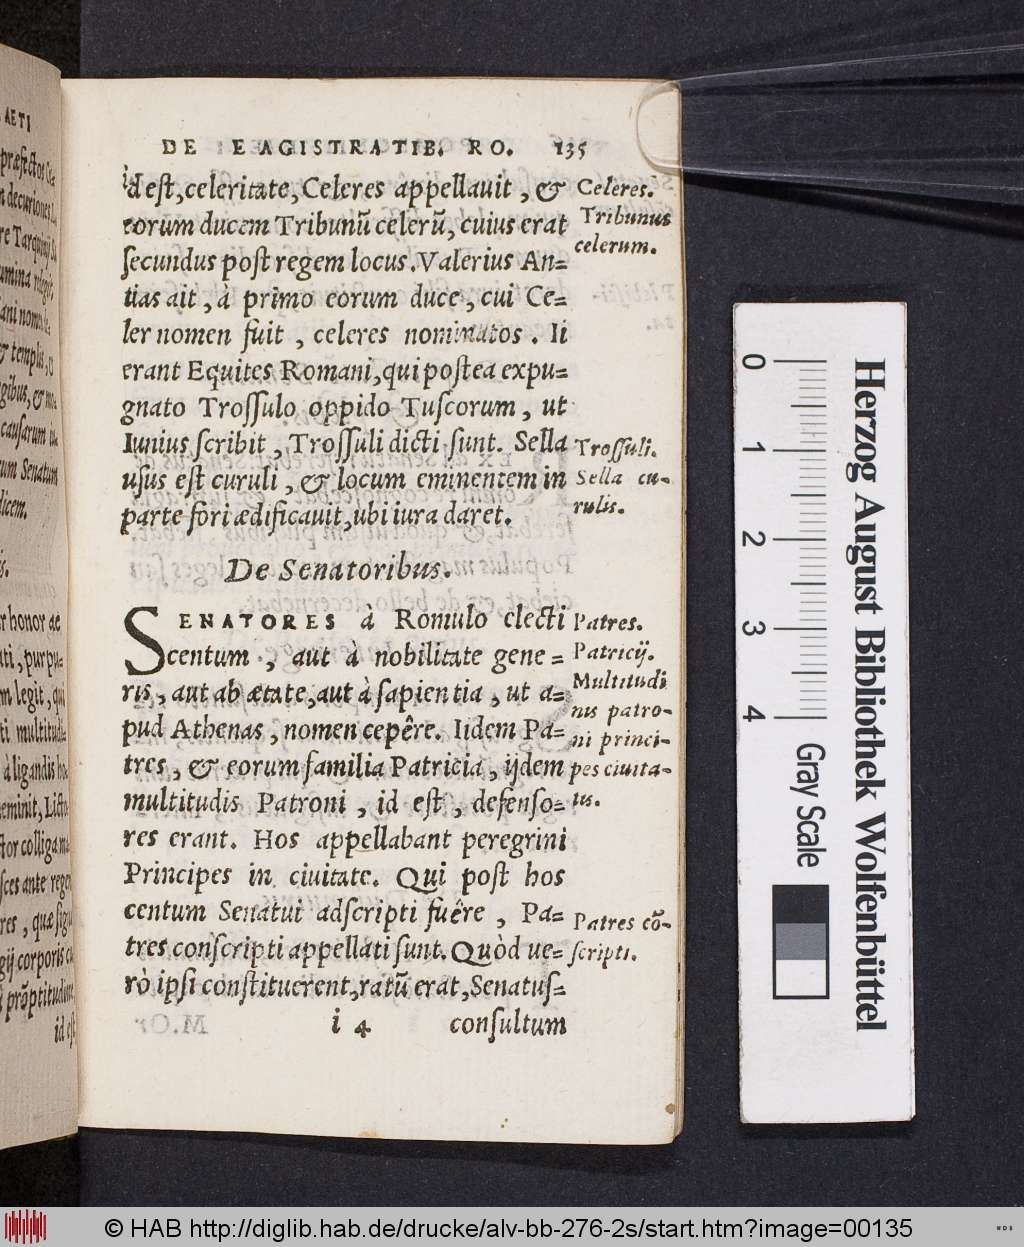 DE EAGISTRATIB. RO. 135
id est, celeritate, Celeres appellauit, &
eorum ducem Tribunū celerū, cuius erat
secundus post regem locus. Valerius An=
tias ait, à primo eorum duce, cui Ce=
ler nomen fuit, celeres nominatos. Ii
erant Equites Romani, qui postea expu=
gnato Trossulo oppido Tuscorum, ut
Iunius scribit, Trossuli dicti sunt. Sella
usus est curuli, & locum eminentem in
parte fori ædificauit, ubi iura daret.
Celeres.
Tribunus
celerum.
Trossuli.
Sella cu-
rulis.
De Senatoribus.
SENATORES à Romulo electi
centum, aut à nobilitate gene=
ris, aut ab ætate, aut à sapientia, ut a=
pud Athenas, nomen cepêre. Iidem Pa=
tres, & eorum familia Patricia, ijdem
multitudis Patroni, id est, defenso=
res erant. Hos appellabant peregrini
Principes in ciuitate. Qui post hos
centum Senatui adscripti fuêre, Pa=
tres conscripti appellati sunt. Quòd ue=
rò ipsi constituerent, ratū erat, Senatus=
Patres.
Patricij.
Multitudi
nis patro-
ni princi-
pes ciuita-
tis.
Patres cō-
scripti.
i 4 consultum
AETI
præfectos
decuriones
re Tarquinij
& templis,
gibus, &
causarum
um Senatum
dicem.
r honor ae
ati, purpu=
m legit, qui
ti multitudi=
à ligandis
eminit,
ctor colliga
sces ante
res, quæ
gij corporis
prōptitudine
id est
0 1 2 3 4
Gray Scale
Herzog August Bibliothek Wolfenbüttel
© HAB http://diglib.hab.de/drucke/alv-bb-276-2s/start.htm?image=00135